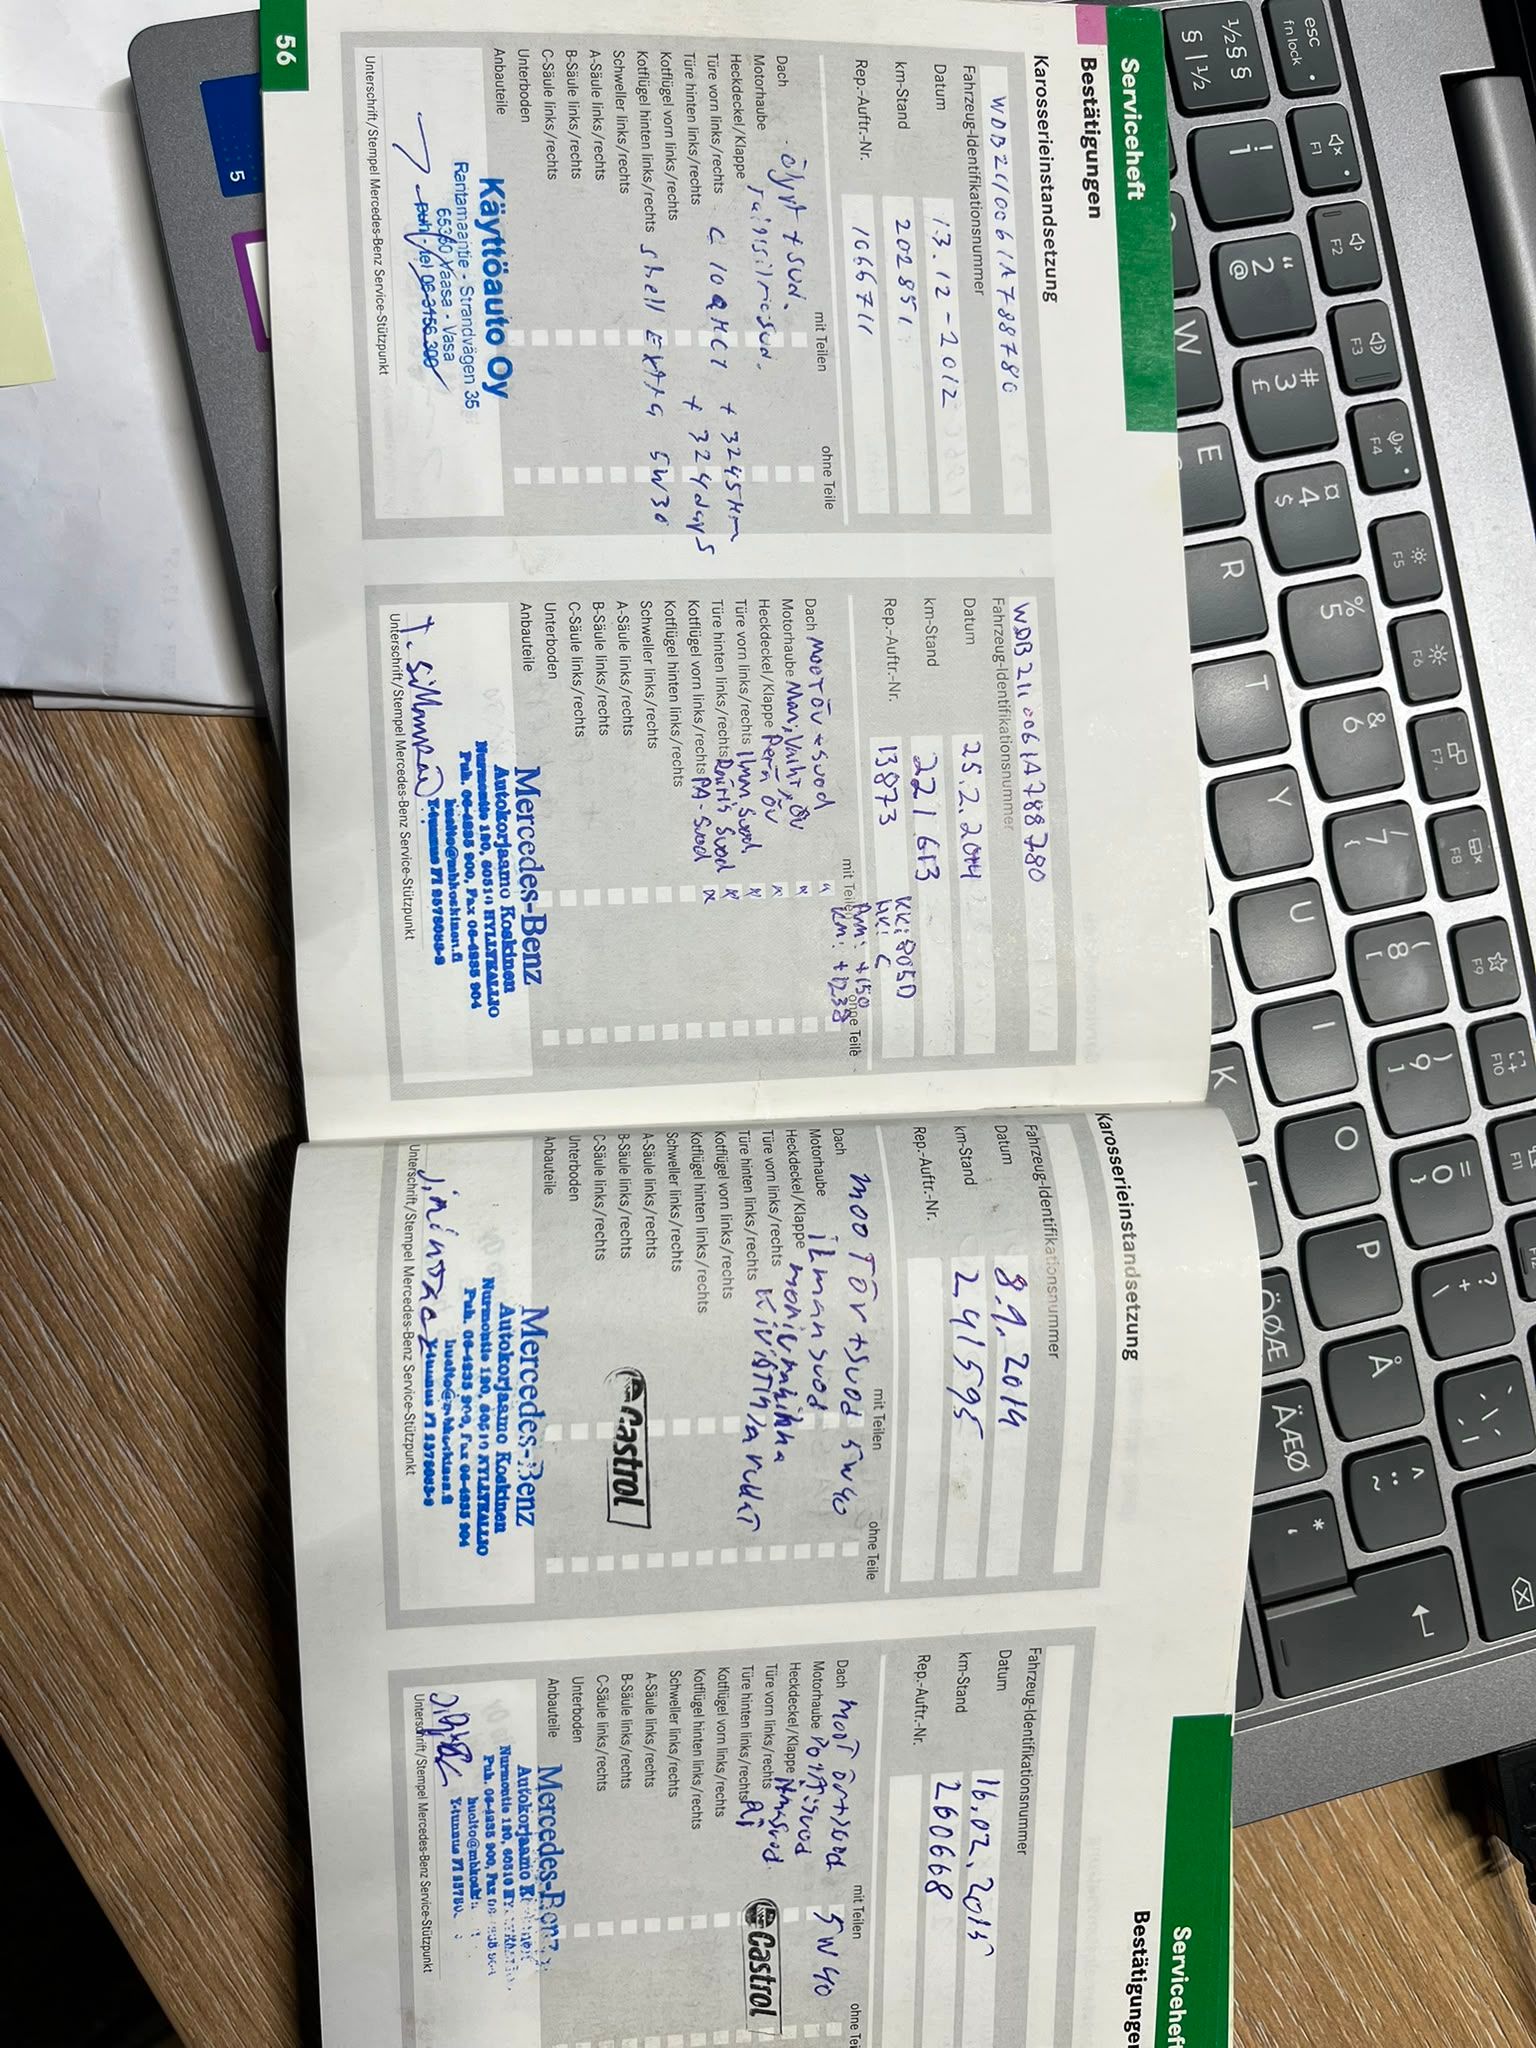 Serviceheft
Bestätigungen
Karosserieinstandsetzung
WDB2110061A788780
Fahrzeug-Identifikationsnummer
Datum 13.12-2012
km-Stand 202851
Rep.-Auftr.-Nr. 1066711
mit Teilen
ohne Teile
Dach
Motorhaube
Heckdeckel/Klappe
Türe vorn links/rechts
Türe hinten links/rechts
Kotflügel vorn links/rechts
Kotflügel hinten links/rechts
Schweller links/rechts
A-Säule links/rechts
B-Säule links/rechts
C-Säule links/rechts
Unterboden
Anbauteile
öljyt + suod.
raitisilmasuod.
+ 3245km
+ 324days
Shell Extra 5W30
Käyttöauto Oy
Rantamaantie - Strandvägen 35
65350 Vaasa - Vasa
Puh - Tel 06-3156 300
Unterschrift/Stempel Mercedes-Benz Service-Stützpunkt
56
WDB2110061A788780
Fahrzeug-Identifikationsnummer
Datum 25.2.2014
km-Stand 221613
Rep.-Auftr.-Nr. 13873
mit Teilen
ohne Teile
Dach mooT öv + suod
Motorhaube
Heckdeckel/Klappe Perä öv
Türe vorn links/rechts Ilm suod
Türe hinten links/rechts Raitis suod
Kotflügel vorn links/rechts PA-suod
Kotflügel hinten links/rechts
Schweller links/rechts
A-Säule links/rechts
B-Säule links/rechts
C-Säule links/rechts
Unterboden
Anbauteile
Mercedes-Benz
Autokorjaamo Koskinen
Nurmontie 190, 60510 HYLLYKALLIO
Puh. 06-4235 900, Fax 06-4235 904
huolto@mbkoskinen.fi
Unterschrift/Stempel Mercedes-Benz Service-Stützpunkt
Karosserieinstandsetzung
Fahrzeug-Identifikationsnummer
Datum 8.9.2014
km-Stand 241595
Rep.-Auftr.-Nr.
mit Teilen
ohne Teile
Dach mooT öv + suod 5W40
Motorhaube ilmansuod
Heckdeckel/Klappe moniurahihna
Türe vorn links/rechts
Türe hinten links/rechts
Kotflügel vorn links/rechts
Kotflügel hinten links/rechts
Schweller links/rechts
A-Säule links/rechts
B-Säule links/rechts
C-Säule links/rechts
Unterboden
Anbauteile
Castrol
Mercedes-Benz
Autokorjaamo Koskinen
Nurmontie 190, 60510 HYLLYKALLIO
Puh. 06-4235 900, Fax 06-4235 904
huolto@mbkoskinen.fi
Unterschrift/Stempel Mercedes-Benz Service-Stützpunkt
Serviceheft
Bestätigungen
Fahrzeug-Identifikationsnummer
Datum 16.02.2015
km-Stand 260668
Rep.-Auftr.-Nr.
mit Teilen
ohne
Dach mooT öv+suod 5W40
Motorhaube
Heckdeckel/Klappe
Türe vorn links/rechts
Türe hinten links/rechts
Kotflügel vorn links/rechts
Kotflügel hinten links/rechts
Schweller links/rechts
A-Säule links/rechts
B-Säule links/rechts
C-Säule links/rechts
Unterboden
Anbauteile
Castrol
Mercedes-Benz
Nurmontie 190, 60510
Unterschrift/Stempel Mercedes-Benz Service-Stützpunkt
esc
fn lock
F1
F2
F3
F4
F5
F6
F7
F8
F9
F10
F11
1
2
3
4
5
6
7
8
9
0
W
E
R
T
Y
U
I
O
P
Å
K
L
ÖØÆ
ÄÆØ
5